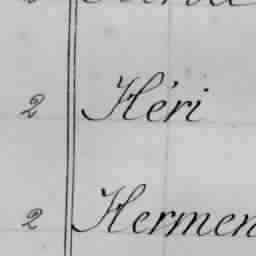 2 Héri
2 Hermen